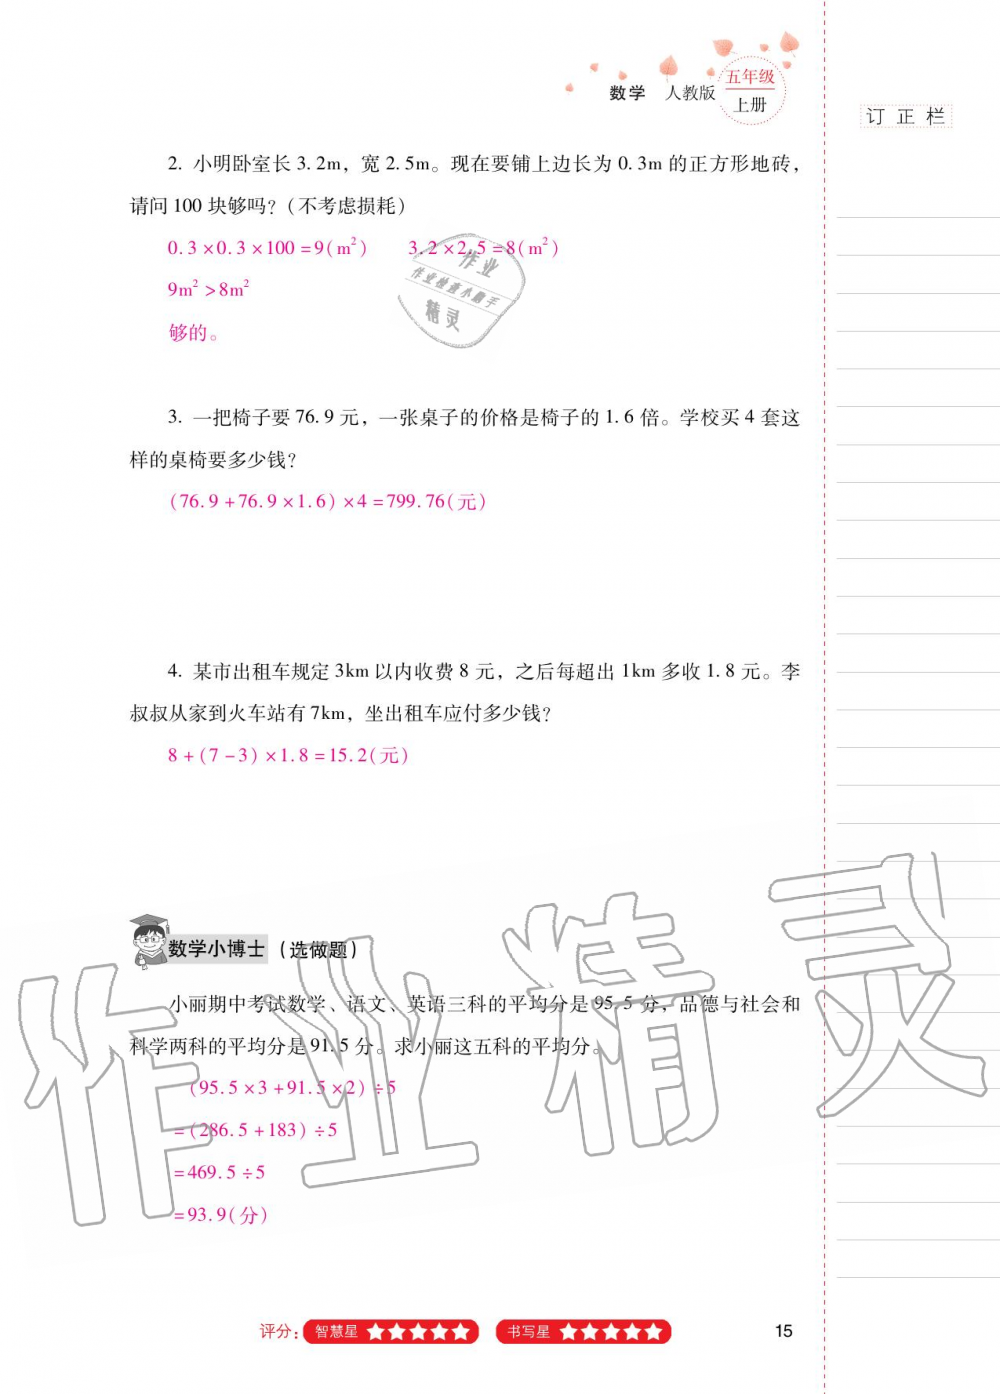 数学 人教版 五年级
上册
订正栏
2. 小明卧室长 3.2m，宽 2.5m。现在要铺上边长为 0.3m 的正方形地砖，
请问 100 块够吗？（不考虑损耗）
0.3×0.3×100=9(m²) 3.2×2.5=8(m²)
9m²>8m²
够的。
作业
作业检查小助手
精灵
3. 一把椅子要 76.9 元，一张桌子的价格是椅子的 1.6 倍。学校买 4 套这
样的桌椅要多少钱？
(76.9+76.9×1.6)×4=799.76(元)
4. 某市出租车规定 3km 以内收费 8 元，之后每超出 1km 多收 1.8 元。李
叔叔从家到火车站有 7km，坐出租车应付多少钱？
8+(7-3)×1.8=15.2(元)
作业精灵
数学小博士（选做题）
小丽期中考试数学、语文、英语三科的平均分是 95.5 分，品德与社会和
科学两科的平均分是 91.5 分。求小丽这五科的平均分。
(95.5×3+91.5×2)÷5
=(286.5+183)÷5
=469.5÷5
=93.9(分)
评分：智慧星 ★★★★★ 书写星 ★★★★★
15